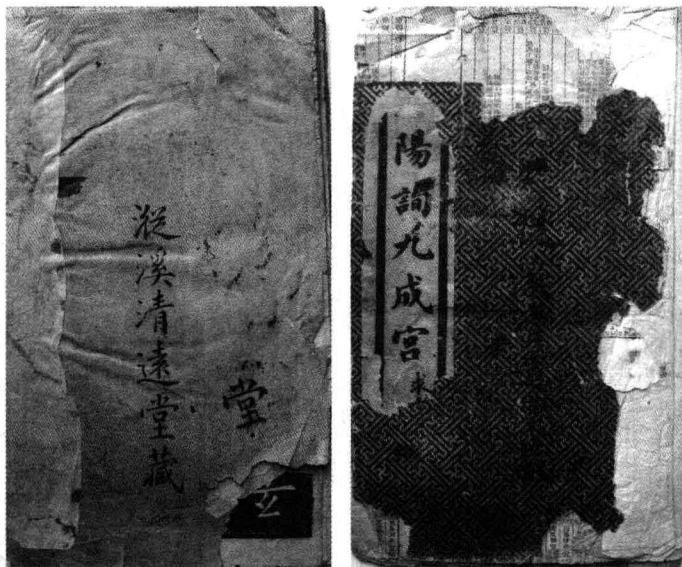 漎溪清遠堂藏
堂
玄
陽詢九成宮